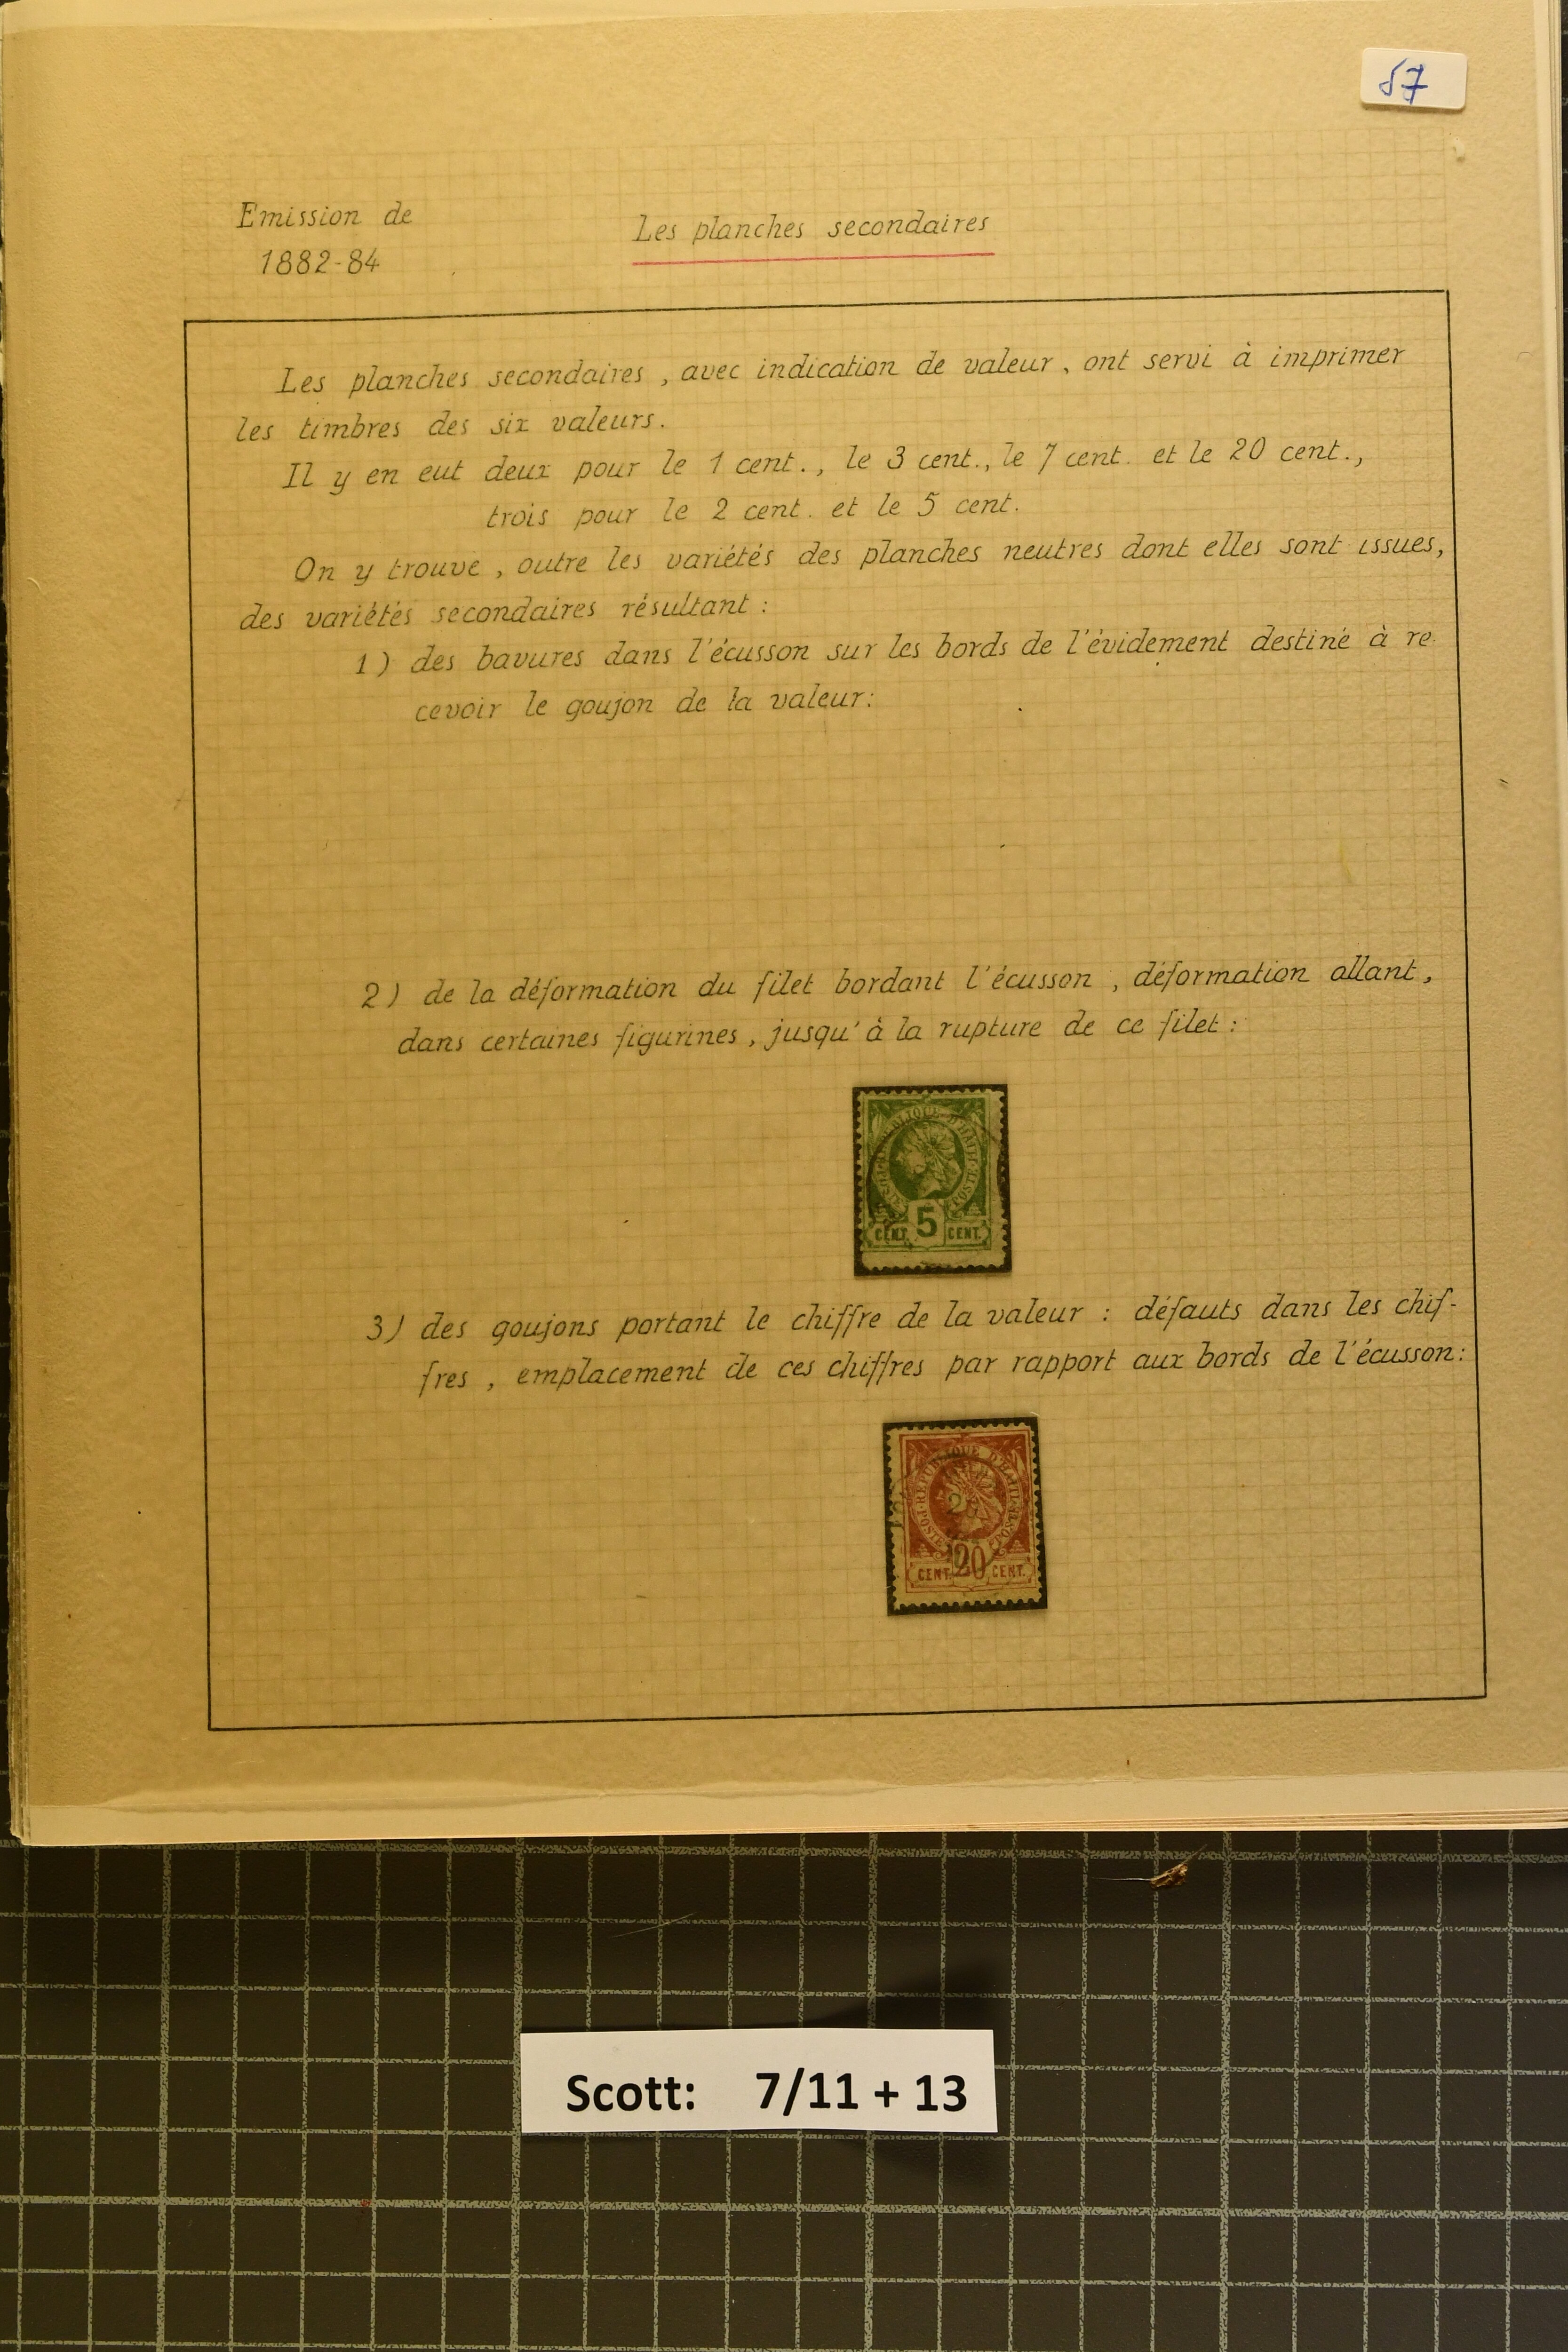 57
Emission de
1882-84
Les planches secondaires
Les planches secondaires, avec indication de valeur, ont servi à imprimer
les timbres des six valeurs.
Il y en eut deux pour le 1 cent., le 3 cent., le 7 cent. et le 20 cent.,
trois pour le 2 cent. et le 5 cent.
On y trouve, outre les variétés des planches neutres dont elles sont issues,
des variétés secondaires résultant :
1) des bavures dans l'écusson sur les bords de l'évidement destiné à re-
cevoir le goujon de la valeur:
2) de la déformation du filet bordant l'écusson, déformation allant,
dans certaines figurines, jusqu'à la rupture de ce filet :
RÉPUBLIQUE D'HAITI
POSTE
CENT. 5 CENT.
3) des goujons portant le chiffre de la valeur : défauts dans les chif-
fres, emplacement de ces chiffres par rapport aux bords de l'écusson:
RÉPUBLIQUE D'HAITI
POSTE POSTE
CENT. 20 CENT.
Scott: 7/11 + 13